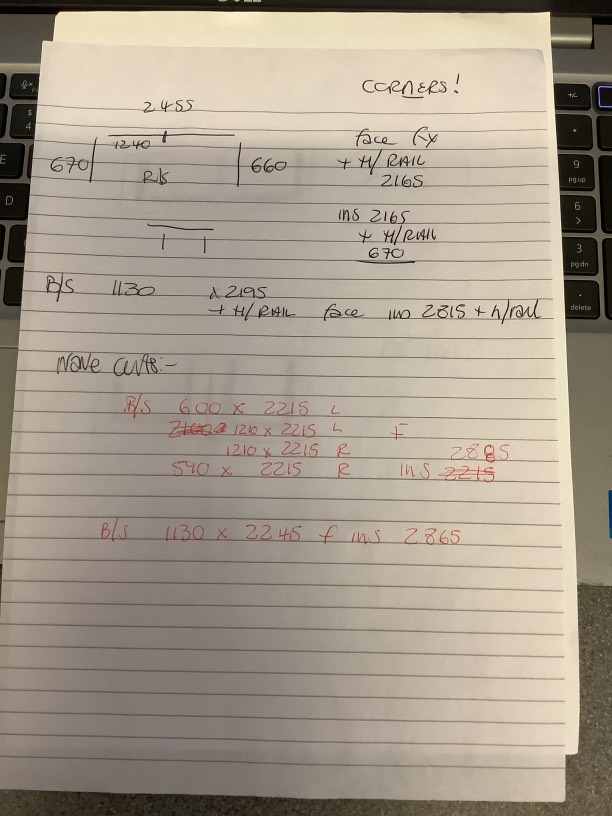 CORNERS!
2455
1240
670
R/S
660
face fix
+ H/RAIL
2165
ins 2165
+ H/RAIL
670
B/S 1130 x 2195
+ H/RAIL face ins 2815 + h/rail
Wave cuts:-
B/S 600 x 2215 L
1210 x 2215 L F
1210 x 2215 R 2885
590 x 2215 R ins 2215
B/S 1130 x 2245 f ins 2865